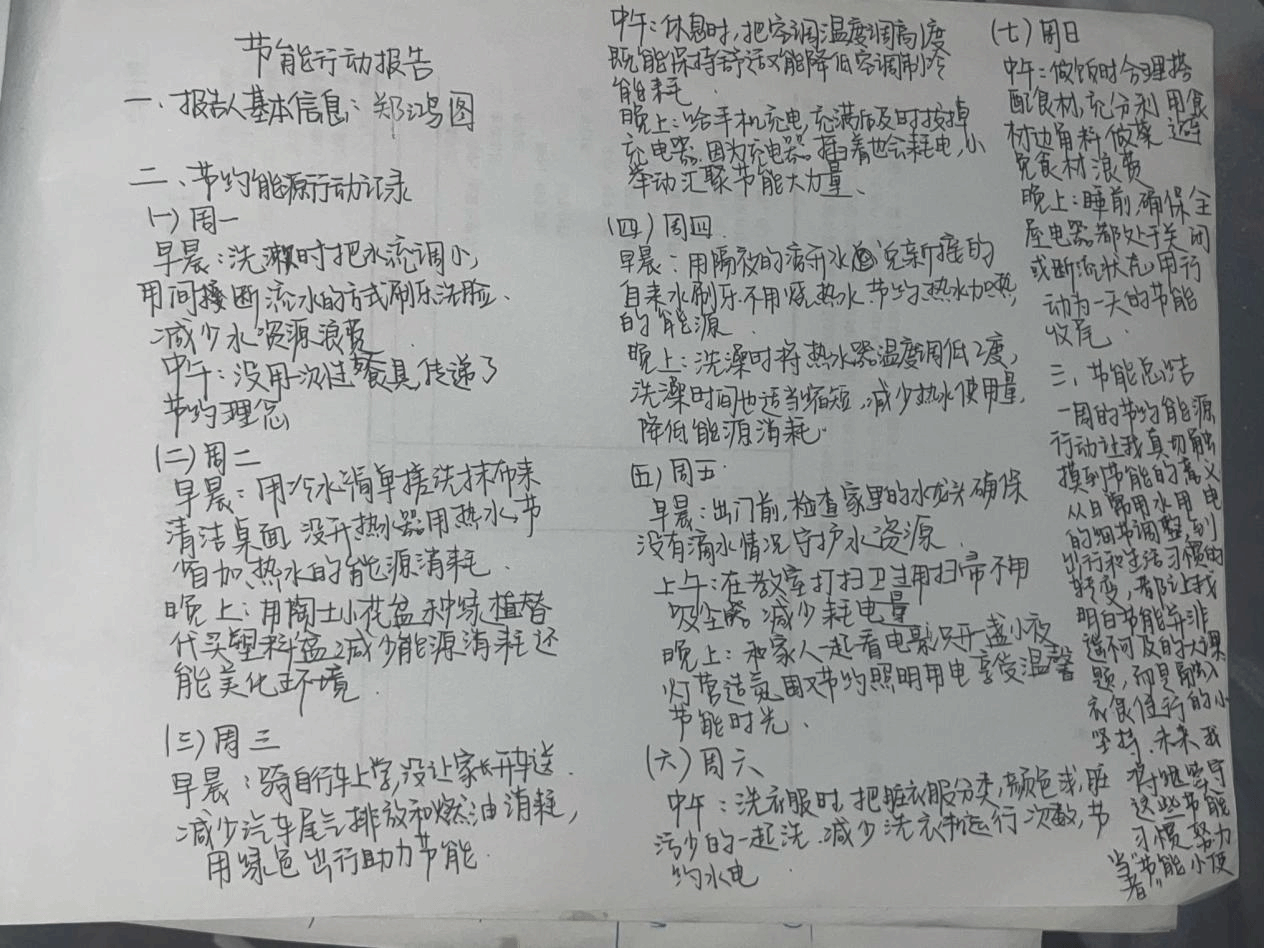 节能行动报告
一、报告人基本信息：郑鸿图
二、节约能源行动记录
(一)周一
早晨：洗漱时把水流调小，
用间接断流水的方式刷牙洗脸、
减少水资源浪费
中午：没用一次性餐具传递了
节约理念
(二)周二
早晨：用冷水简单搓洗抹布来
清洁桌面 没开热水器用热水，节
省加热水的能源消耗.
晚上：用陶土小花盆种绿植替
代买塑料盆减少能源消耗还
能美化环境.
(三)周三
早晨：骑自行车上学，没让家长开车送.
减少汽车尾气排放和燃油消耗，
用绿色出行助力节能.
中午：休息时，把空调温度调高1度
既能保持舒适又能降低空调制冷
能耗.
晚上：给手机充电，充满后及时拔掉
充电器.因为充电器插着也会耗电，小
举动汇聚节能大力量、
(四)周四
早晨：用隔夜的凉开水兑新接的
自来水刷牙.不用烧热水 节约热水加热
的能源.
晚上：洗澡时将热水器温度调低2度，
洗澡时间也适当缩短.减少热水使用量，
降低能源消耗.
(五)周五
早晨：出门前，检查家里的水龙头确保
没有滴水情况 守护水资源.
上午：在教室打扫卫生用扫帚不用
吸尘器 减少耗电量
晚上：和家人一起看电影只开一盏小夜
灯营造氛围又节约照明用电享受温馨
节能时光.
(六)周六
中午：洗衣服时，把脏衣服分类，颜色浅，脏
污少的一起洗.减少洗衣机运行次数，节
约水电
(七)周日
中午：做饭时合理搭
配食材，充分利用食
材边角料做菜 避
免食材浪费
晚上：睡前，确保全
屋电器都处于关闭
或断流状态，用行
动为一天的节能
收尾.
三、节能总结
一周的节约能源
行动让我真切触
摸到节能的意义
从日常用水用电
的细节调整，到
出行和生活习惯的
转变，都让我
明白节能并非
遥不可及的大课
题，而是融入
衣食住行的小
坚持.未来我
将继续坚守
这些节能
习惯努力
当"节能小使
者"